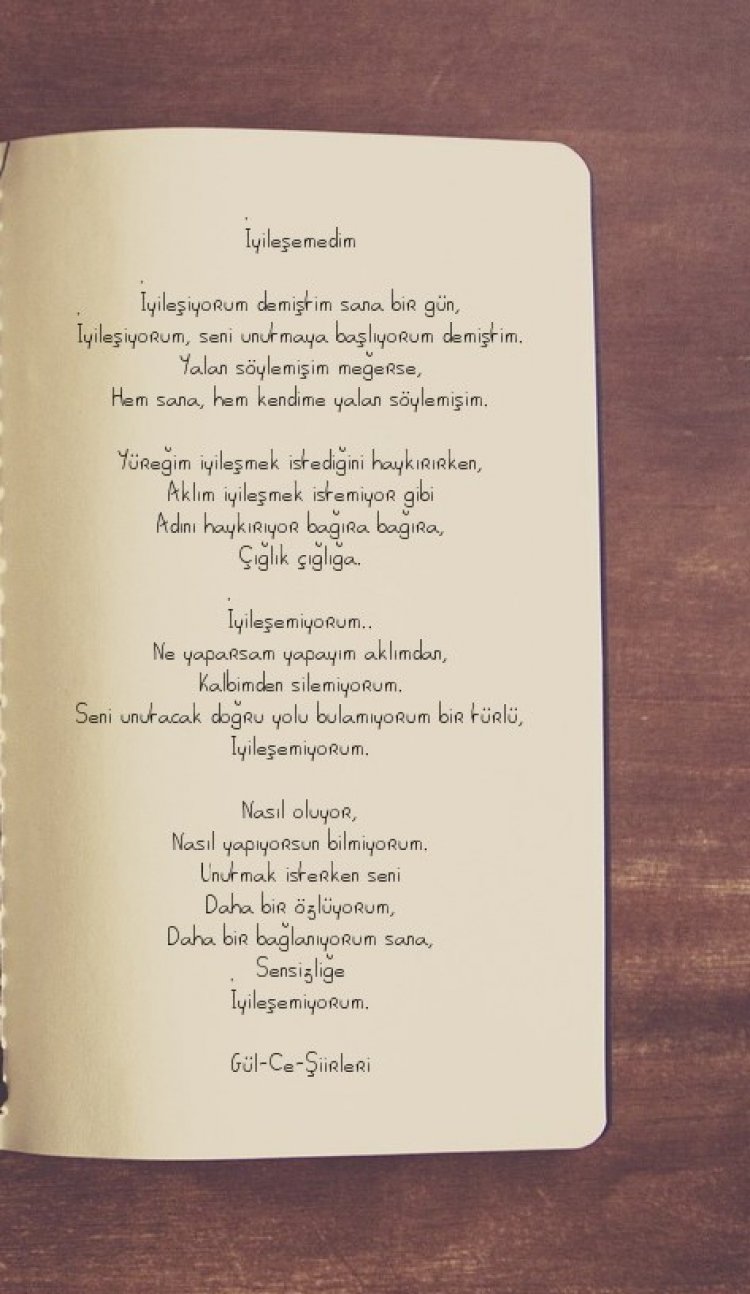 İyileşemedim
İyileşiyorum demiştim sana bir gün,
İyileşiyorum, seni unutmaya başlıyorum demiştim.
Yalan söylemişim meğerse,
Hem sana, hem kendime yalan söylemişim.
Yüreğim iyileşmek istediğini haykırırken,
Aklım iyileşmek istemiyor gibi
Adını haykırıyor bağıra bağıra,
Çığlık çığlığa.
İyileşemiyorum..
Ne yaparsam yapayım aklımdan,
Kalbimden silemiyorum.
Seni unutacak doğru yolu bulamıyorum bir türlü,
İyileşemiyorum.
Nasıl oluyor,
Nasıl yapıyorsun bilmiyorum.
Unutmak isterken seni
Daha bir özlüyorum,
Daha bir bağlanıyorum sana,
Sensizliğe
İyileşemiyorum.
Gül-Ce-Şiirleri